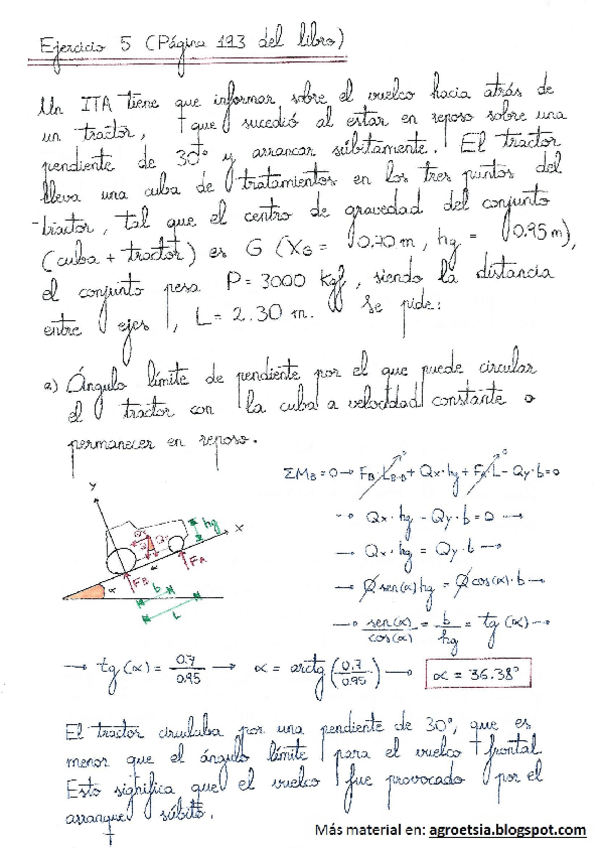 Ejercicio 5 (Página 193 del libro)
Un ITA tiene que informar sobre el vuelco hacia atrás de
un tractor, que sucedió al estar en reposo sobre una
pendiente de 30° y arrancar súbitamente. El tractor
lleva una cuba de tratamientos en los tres puntos del
tractor, tal que el centro de gravedad del conjunto
(cuba + tractor) es G (XG = 0.70 m, hg = 0.95 m),
el conjunto pesa P = 3000 Kgf, siendo la distancia
entre ejes, L = 2.30 m. Se pide:
a) Ángulo límite de pendiente por el que puede circular
el tractor con la cuba a velocidad constante o
permanecer en reposo.
ΣM_B = 0 → F_B·L_B-B + Qx·hg + F_A·L - Qy·b = 0
0 0
→ Qx·hg - Qy·b = 0 →
→ Qx·hg = Qy·b →
→ Q sen(α) hg = Q cos(α)·b →
→ sen(α)/cos(α) = b/hg = tg(α) →
Y
X
hg
F_A
F_B
α
α
b
L
→ tg(α) = 0.7/0.95 → α = arctg(0.7/0.95) → α = 36.38°
El tractor circulaba por una pendiente de 30°, que es
menor que el ángulo límite para el vuelco frontal.
Esto significa que el vuelco fue provocado por el
arranque súbito.
Más material en: agroetsia.blogspot.com